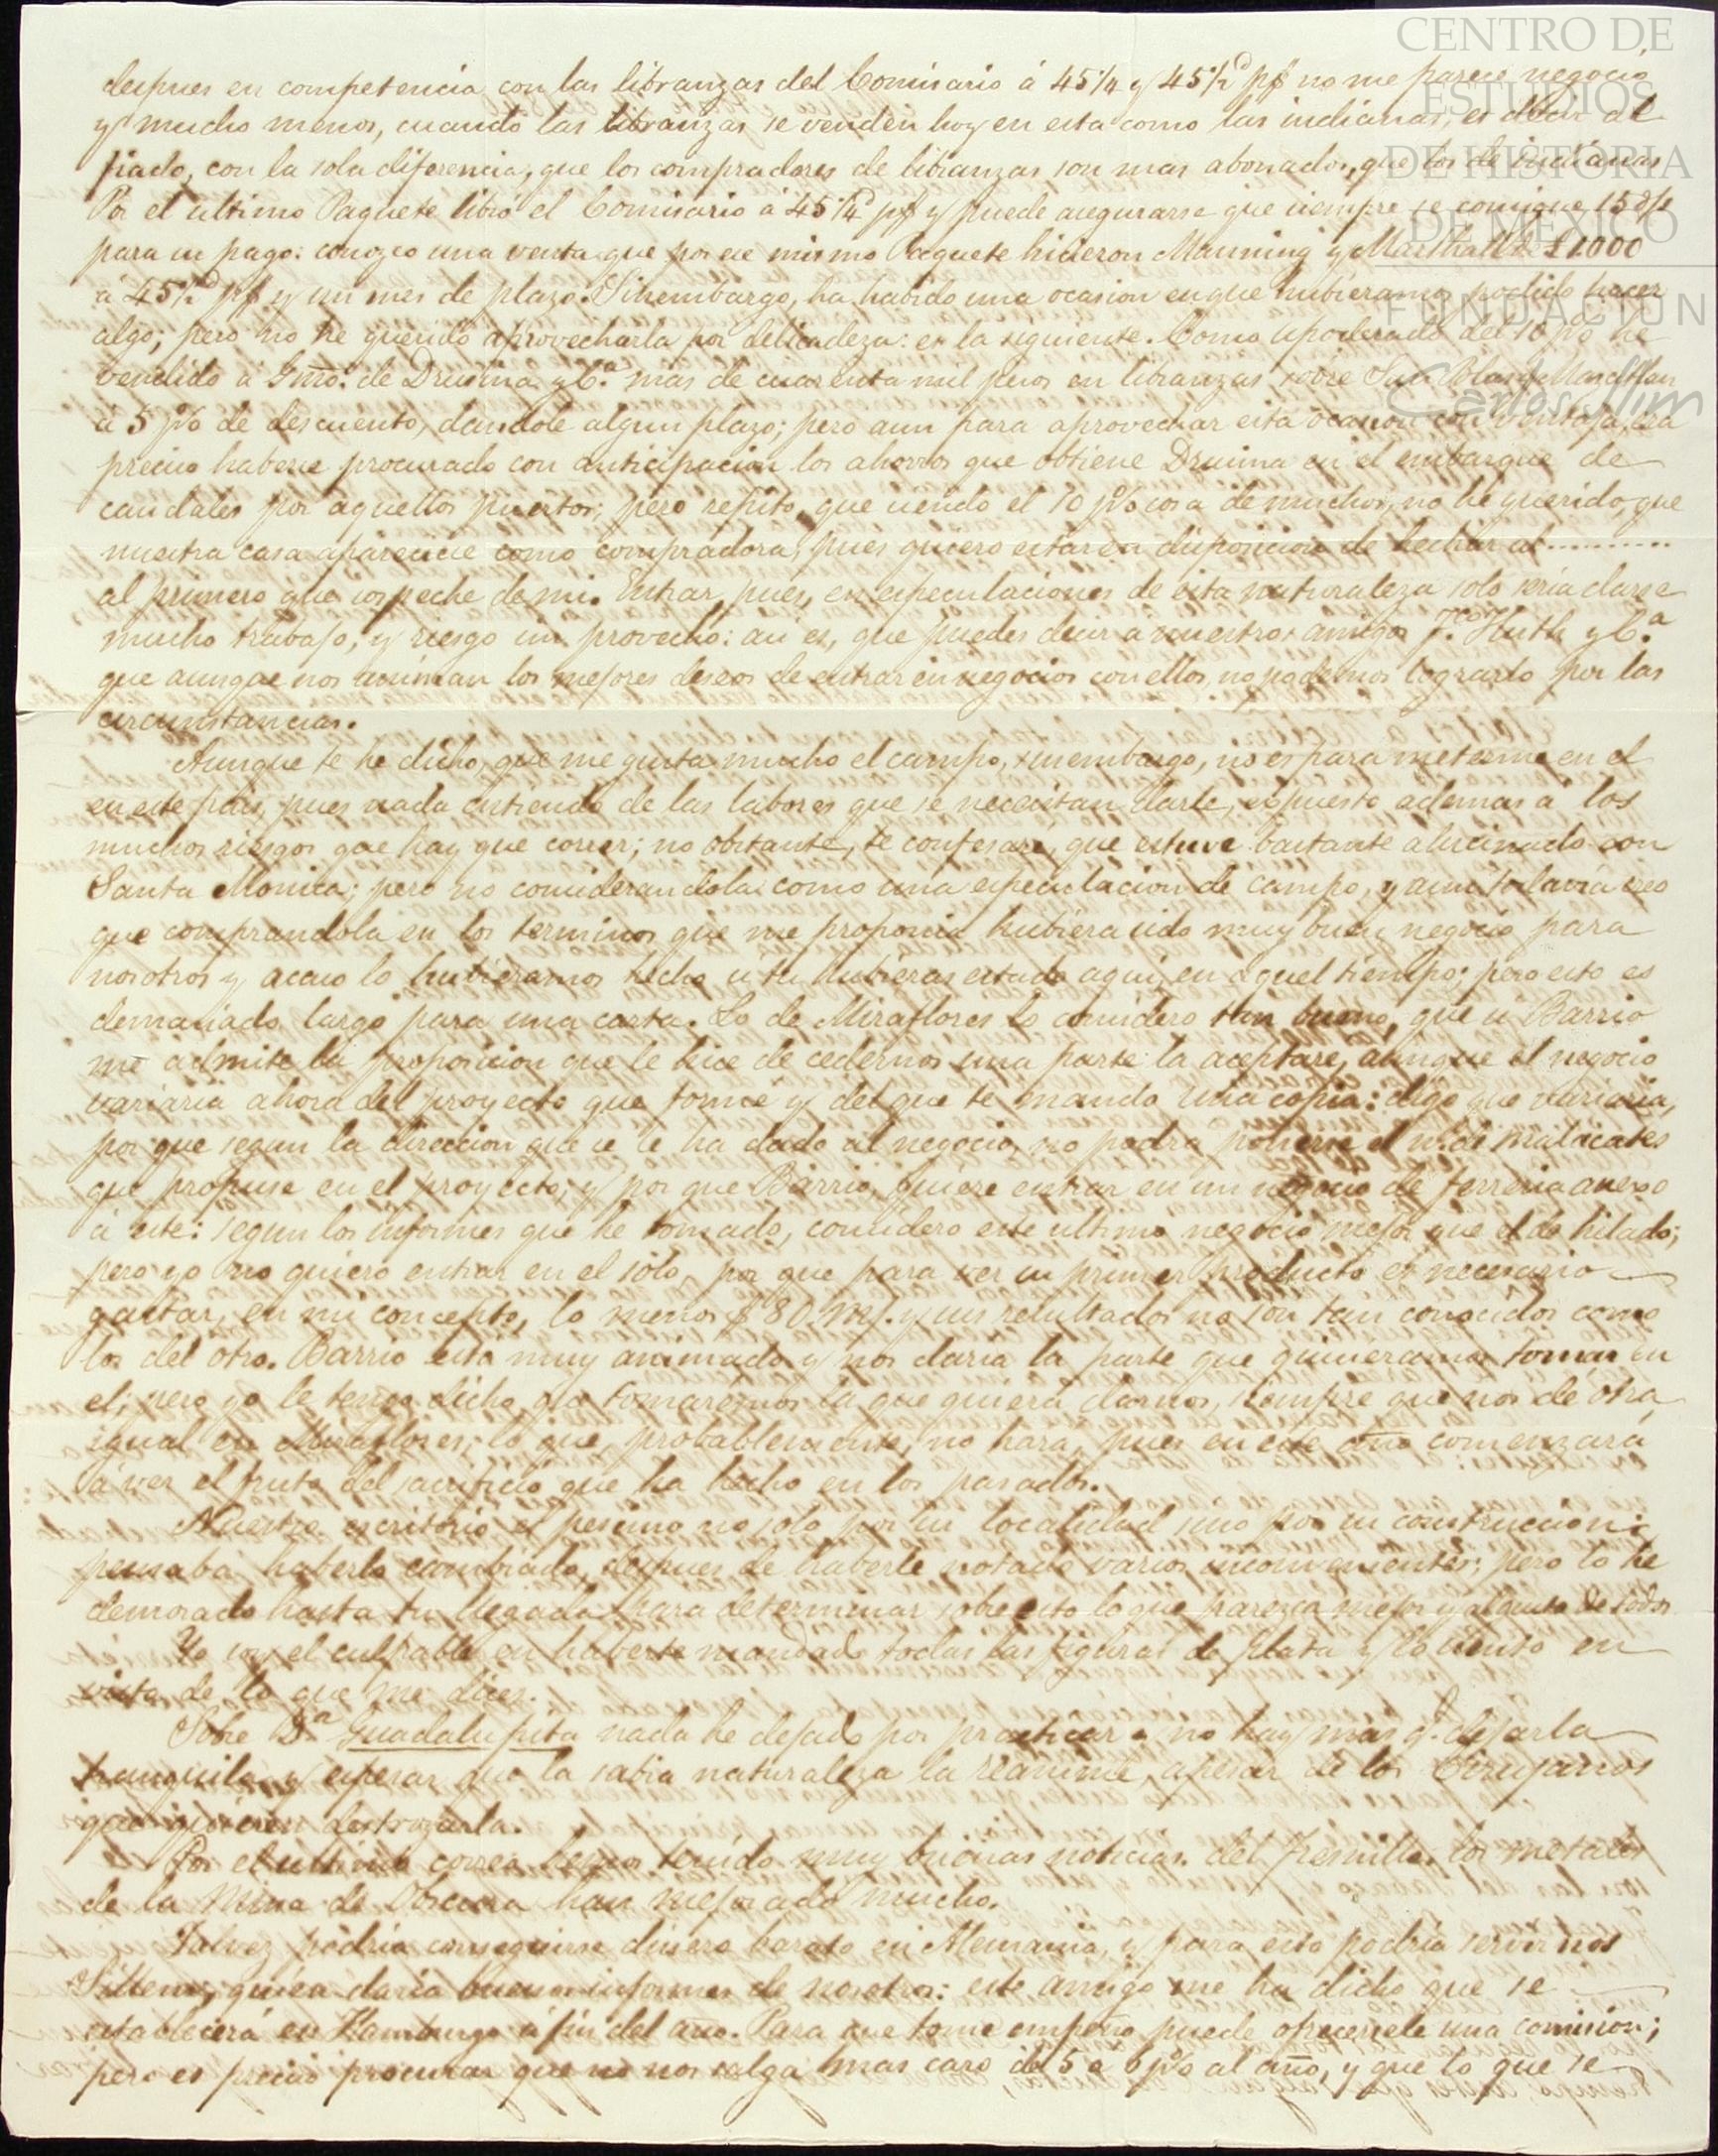 CENTRO DE
ESTUDIOS
DE HISTORIA
DE MÉXICO
FUNDACIÓN
Carlos Slim
despues en competencia con las libranzas del Comisario á 45 1/4 y 45 1/2 d p$ no me parece negocio
y mucho menos, cuando las libranzas se venden hoy en esta como las indianas, es decir al
fiado, con la sola diferencia, que los compradores de libranzas son mas abonados, que los de indianas
Por el ultimo Paquete libró el Comisario á 45 1/4 d p$ y puede asegurarse que siempre se consigue 15 d/f
para su pago: conozco una venta que por ese mismo Paquete hicieron Manning y Marshall de £1000
á 45 1/2 d p$ y un mes de plazo. Sinembargo, ha habido una ocasion en que hubieramos podido hacer
algo; pero no he querido aprovecharla por delicadeza: es la siguiente. Como apoderado del 10 p% he
vendido a Gmo. de Drusina y C.a mas de cuarenta mil pesos en libranzas sobre San Blas y Mazatlan
á 5 p% de descuento, dandole algun plazo; pero aun para aprovechar esta ocasion con ventaja, era
preciso haberse procurado con anticipacion los ahorros que obtiene Drusina en el embarque de
caudales por aquellos puertos; pero repito, que siendo el 10 p% cosa de muchos, no he querido, que
nuestra casa apareciese como compradora, pues quiero estar en disposicion de hechar al ..........
al primero que sospeche de mi. Entrar, pues, en especulaciones de esta naturaleza solo sería darse
mucho trabajo, y riesgo sin provecho: asi es, que puedes decir a nuestros amigos F.co Huth y C.a
que aunque nos animan los mejores deseos de entrar en negocios con ellos, no podemos lograrlo por las
circunstancias.
Aunque te he dicho, que me gusta mucho el campo, sinembargo, no es para meterme en el
en este pais, pues nada entiendo de las labores que se necesitan darle, espuesto ademas á los
muchos riesgos que hay que correr; no obstante, te confesaré, que estuve bastante alucinado con
Santa Monica; pero no considerandola como una especulacion de campo, y aun todavia creo
que comprandola en los terminos que me proponia hubiera sido muy buen negocio para
nosotros y acaso lo hubieramos hecho si tu hubieras estado aqui, en aquel tiempo; pero esto es
demasiado largo para una carta. Lo de Miraflores lo considero tan bueno, que si Barrio
me admite la proposicion que le hice de cedernos una parte la aceptaré, aunque el negocio
variaria ahora del proyecto que formé y del que te mando una copia: digo que variaria,
por que segun la direccion que se le ha dado al negocio, no podra ponerse el n.o de malacates
que propuse en el proyecto; y por que Barrio, quiere entrar en un negocio de ferreria anexo
á este: segun los informes que he tomado, considero este ultimo negocio mejor que el de hilados;
pero yo no quiero entrar en el solo, por que para ver su primer producto es necesario
gastar, en mi concepto, lo menos $ 80 m/ p. y sus resultados no son tan conocidos como
los del otro. Barrio está muy animado, y nos daria la parte que quisieramos tomar en
el; pero yo le tengo dicho, que tomaremos la que quiera darnos, siempre que nos dé otra
igual en Miraflores; lo que, probablemente, no hara, pues en este año comenzará
á ver el fruto del sacrificio que ha hecho en los pasados.
Nuestro escritorio es pesimo no solo por su localidad sino por su construccion:
pensaba haberlo cambiado, despues de haberle notado varios inconvenientes; pero lo he
demorado hasta tu llegada para determinar sobre esto lo que parezca mejor y al gusto de todos
Yo soy el culpable en haberte mandado todas las figuras de Plata y lo siento en
vista de lo que me dices.
Sobre D.a Guadalupita nada he dejado por practicar y no hay mas q. dejarla
tranquila, y esperar que la sabia naturaleza la reanime, apesar de los Cirujanos
que quieren destrozarla.
Por el ultimo correo hemos tenido muy buenas noticias del Fresnillo, los metales
de la Mina de Obscura han mejorado mucho.
Talvez podria conseguirse dinero barato en Alemania, y para esto podria servirnos
Sillem, quien daria buenos informes de nosotros: este amigo me ha dicho que se
establecerá en Hamburgo á fin del año. Para que tome empeño puede ofrecersele una comision;
pero es preciso procurar que no nos salga mas caro del 5 a 6 p% al año, y que lo que se